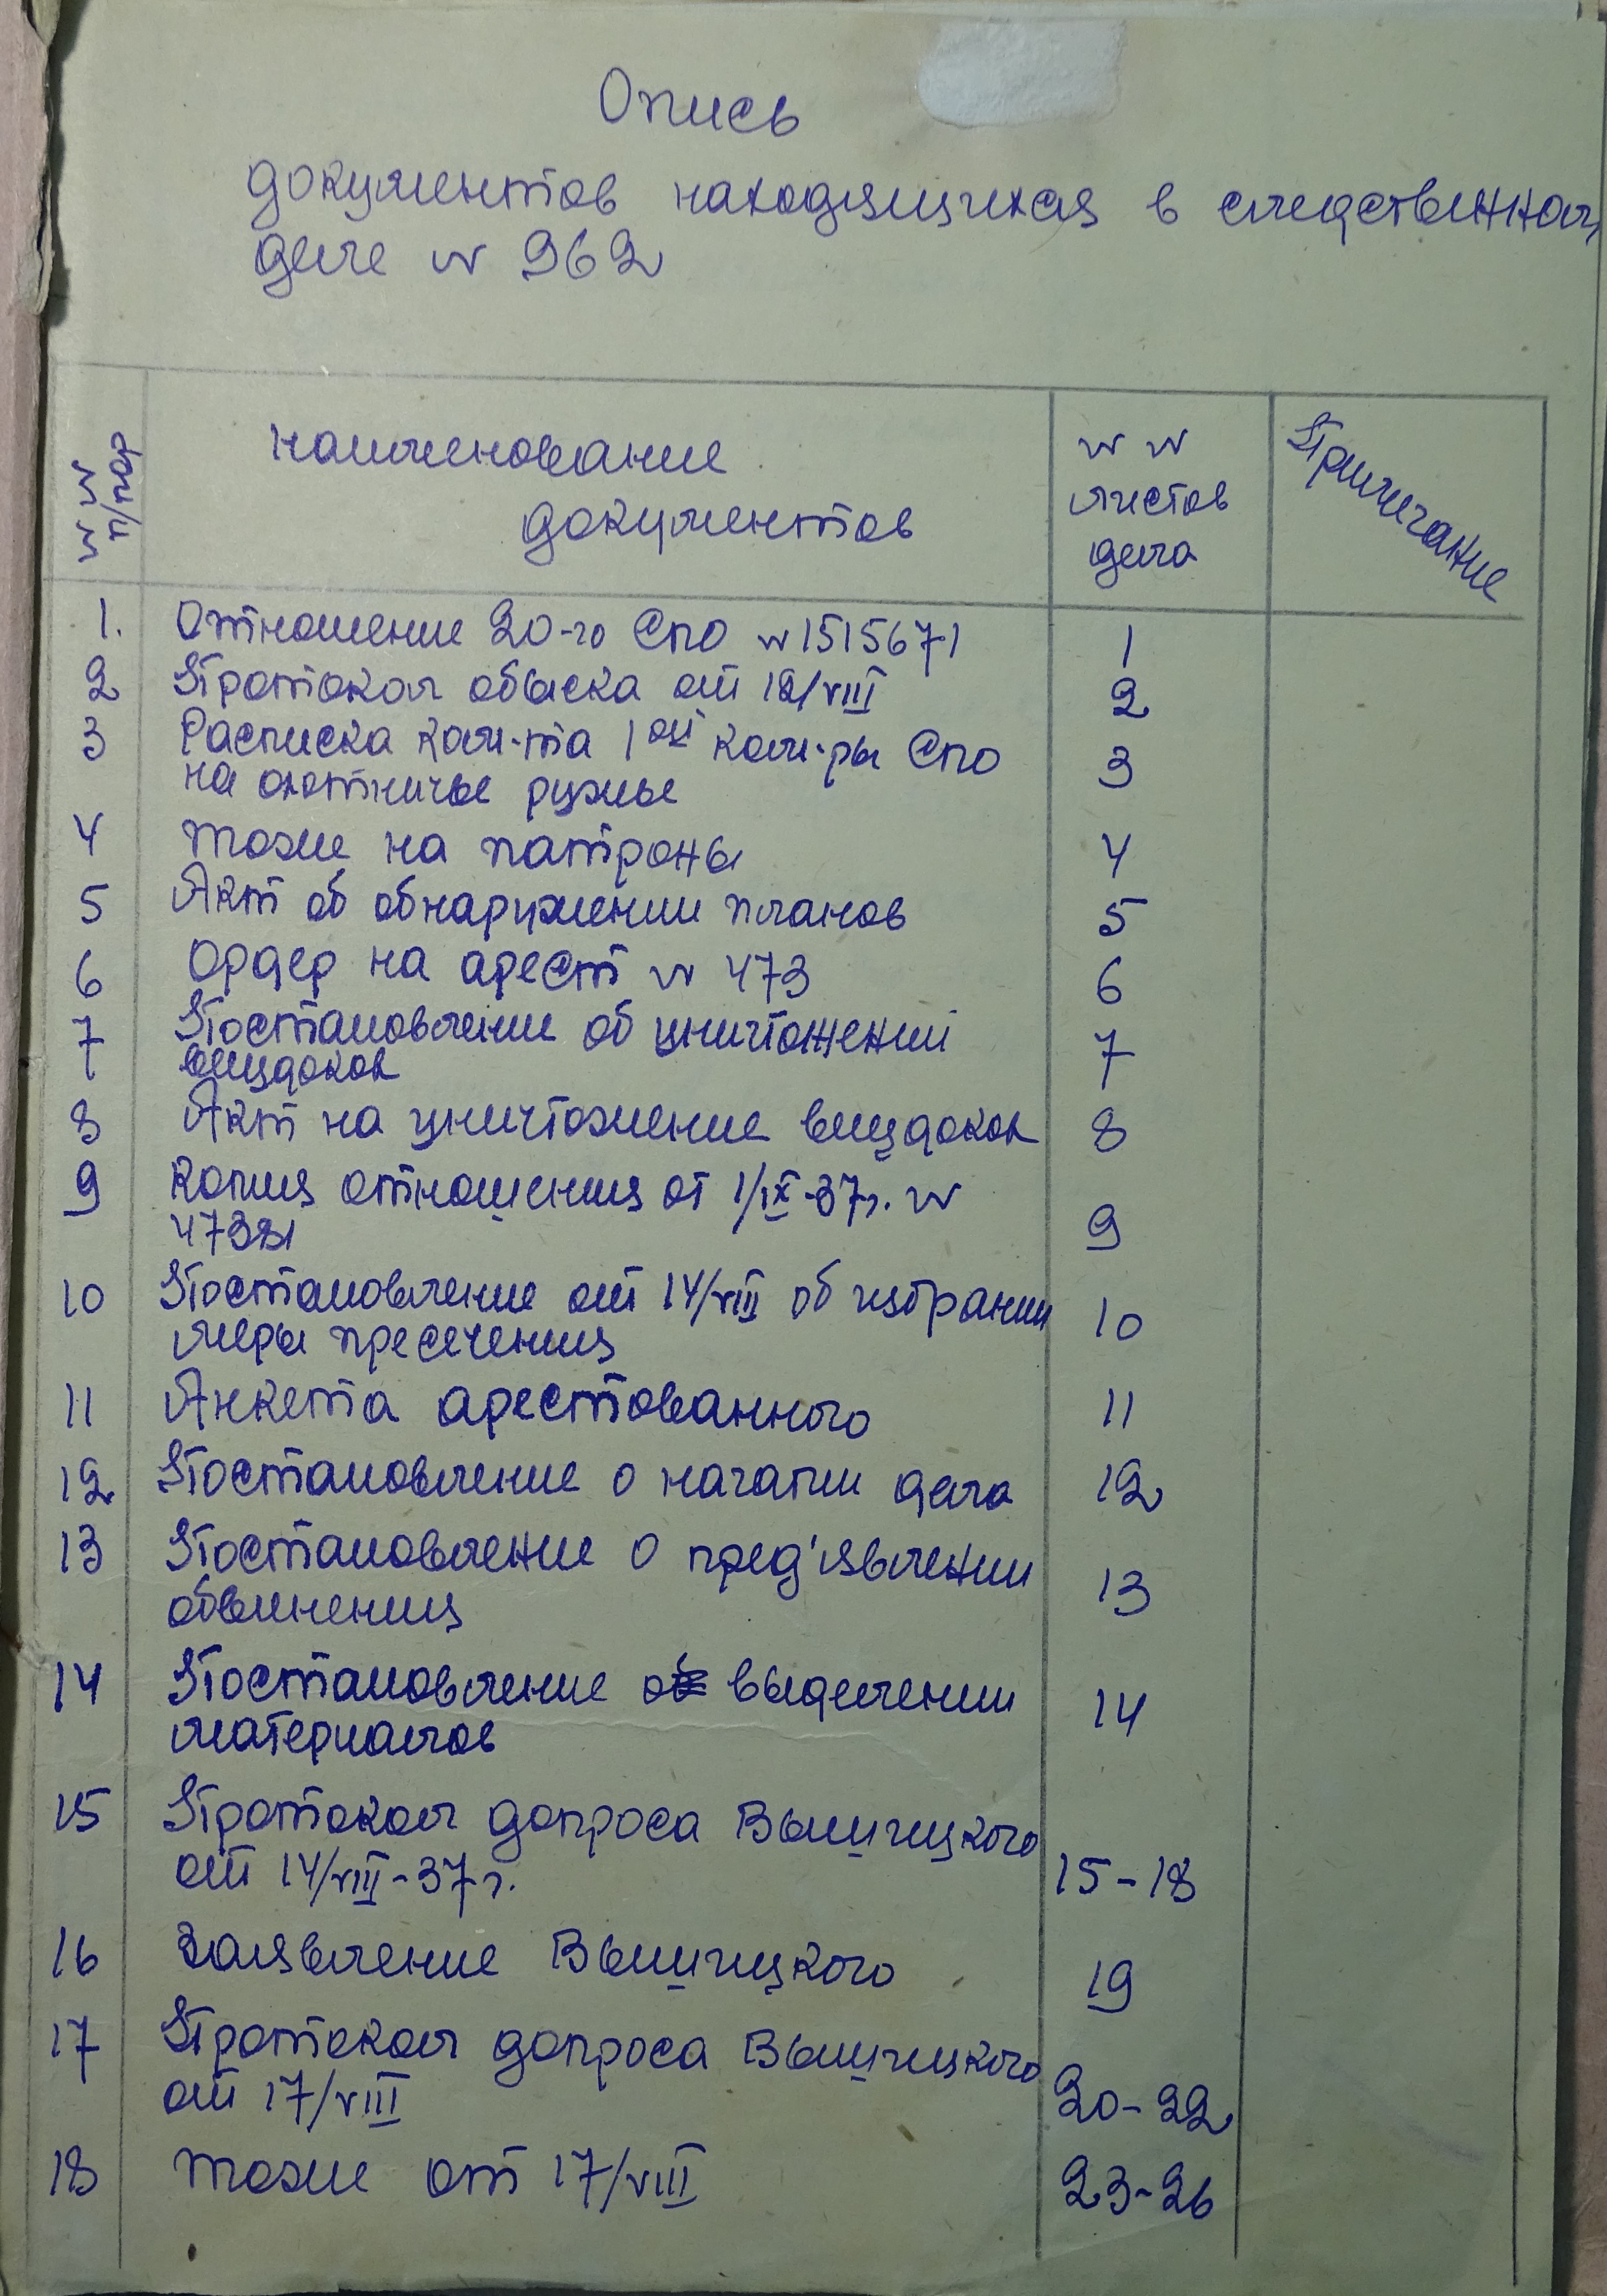 Опись
документов находящихся в следственном
деле № 962
№ №
п/пор
наименование
документов
№ №
листов
дела
Примечание
1. Отношение 20-го СПО № 1515671 1
2 Протокол обыска от 12/VIII 2
3 Расписка ком-та 1ой ком-ры СПО
на охотничье ружье 3
4 тоже на патроны 4
5 Акт об обнаружении планов 5
6 Ордер на арест № 473 6
7 Постановление об уничтожении
вещдоков 7
8 Акт на уничтожение вещдоков 8
9 Копия отношения от 1/IX-37г. №
9
10 Постановление от 14/VIII об избрании
меры пресечения 10
11 Анкета арестованного 11
12 Постановление о начатии дела 12
13 Постановление о пред'явлении
обвинения 13
14 Постановление о выделении
материалов 14
15 Протокол допроса Вышицкого
от 14/VIII-37г. 15-18
16 Заявление Вышицкого 19
17 Протокол допроса Вышицкого
от 17/VIII 20-22
18 тоже от 17/VIII 23-26